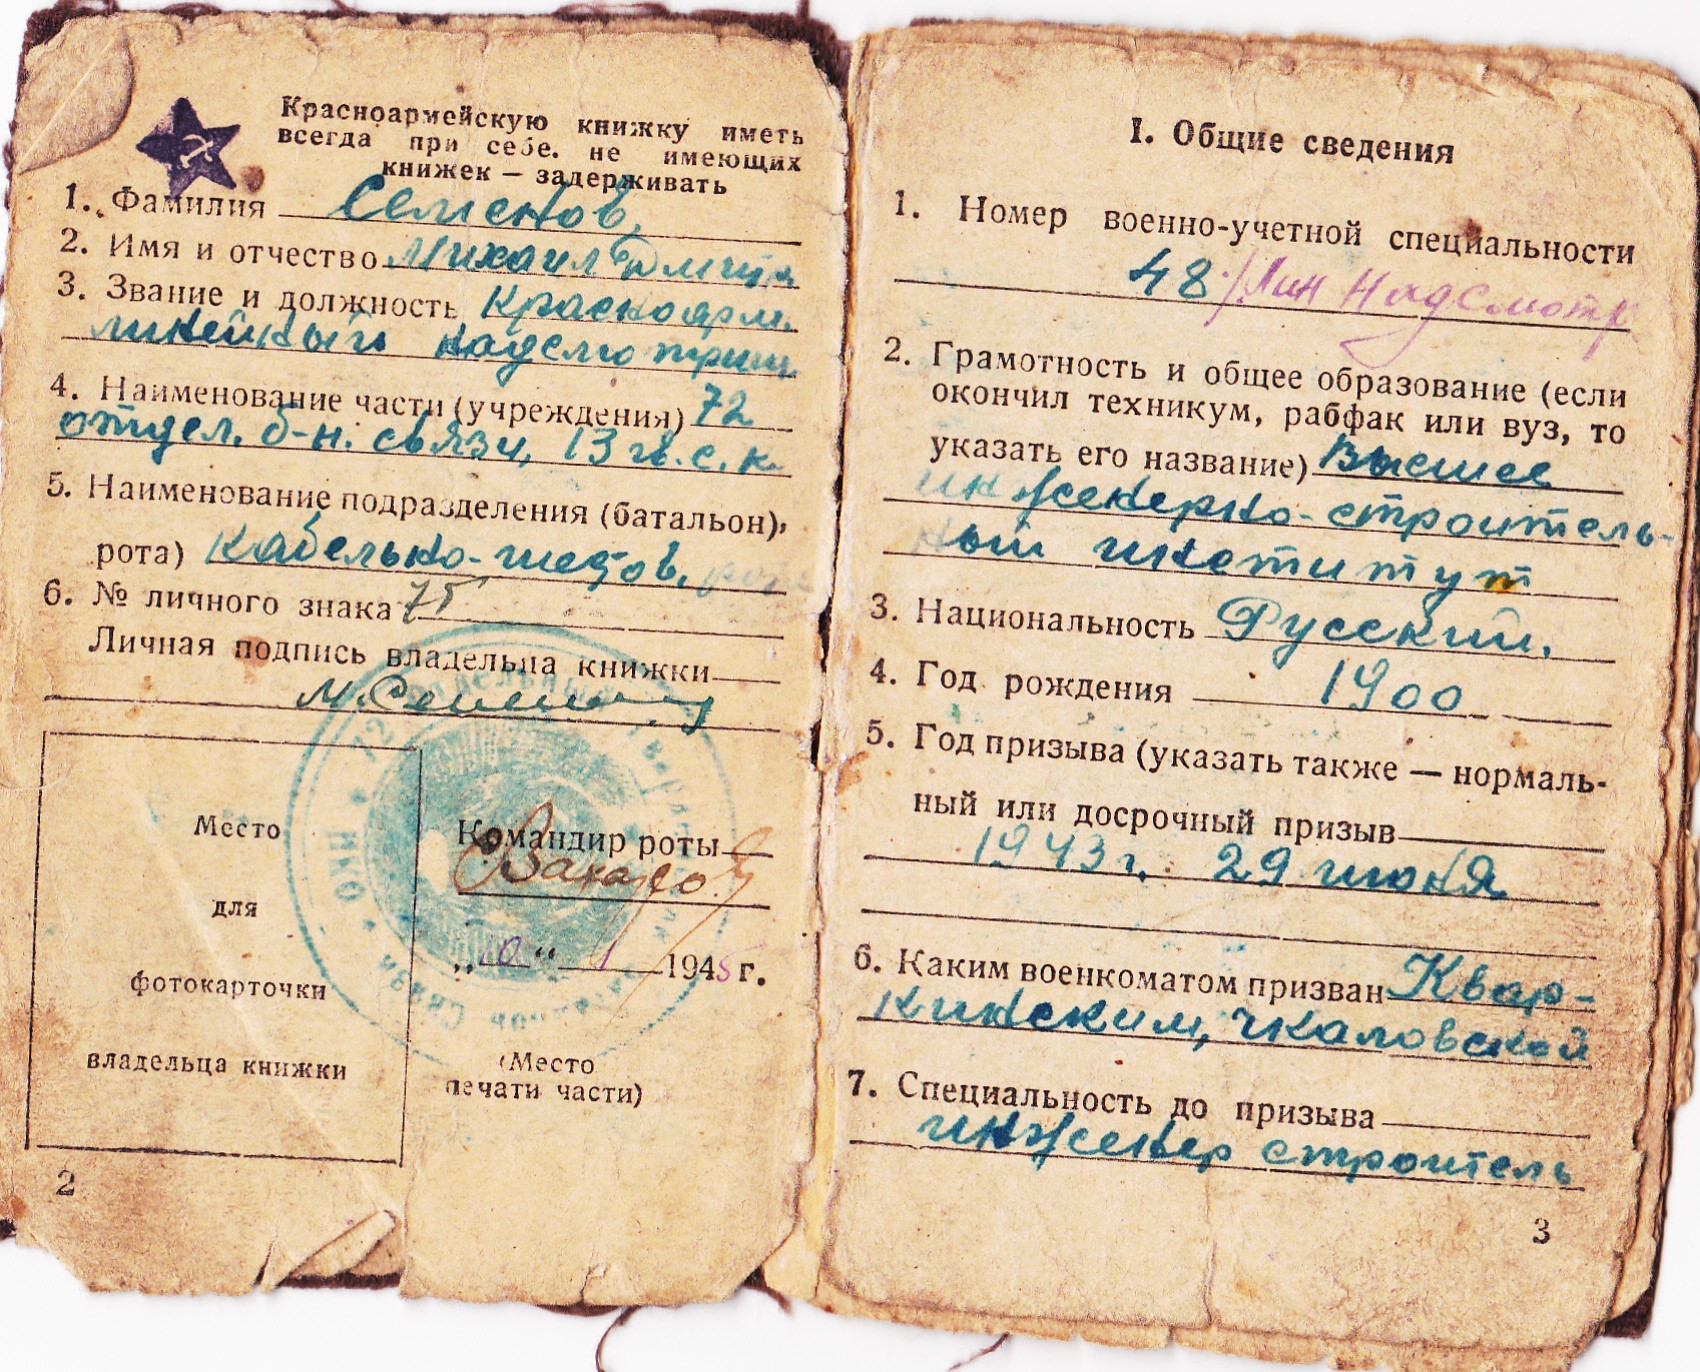 Красноармейскую книжку иметь
всегда при себе. не имеющих
книжек — задерживать
1. Фамилия Семенов,
2. Имя и отчество Михаил Дмитр.
3. Звание и должность Красноарм.
линейный надсмотрищ.
4. Наименование части (учреждения) 72
отдел. б-н. связи, 13 гв. с. к.
5. Наименование подразделения (батальон),
рота) Кабельно-шестов. рота
6. № личного знака 75
Личная подпись владельца книжки
М. Семен
Место
для
фотокарточки
владельца книжки
Командир роты
Захаров
„10“ 1 1945 г.
(Место
печати части)
72 НКО Связи
2
I. Общие сведения
1. Номер военно-учетной специальности
48 / Лин Надсмотр
2. Грамотность и общее образование (если
окончил техникум, рабфак или вуз, то
указать его название) Высшее
инженерно-строитель-
ный институт
3. Национальность Русский.
4. Год рождения 1900
5. Год призыва (указать также — нормаль-
ный или досрочный призыв
1943 г. 29 июня
6. Каким военкоматом призван Квар-
кинским, Чкаловской
7. Специальность до призыва
инженер строитель
3